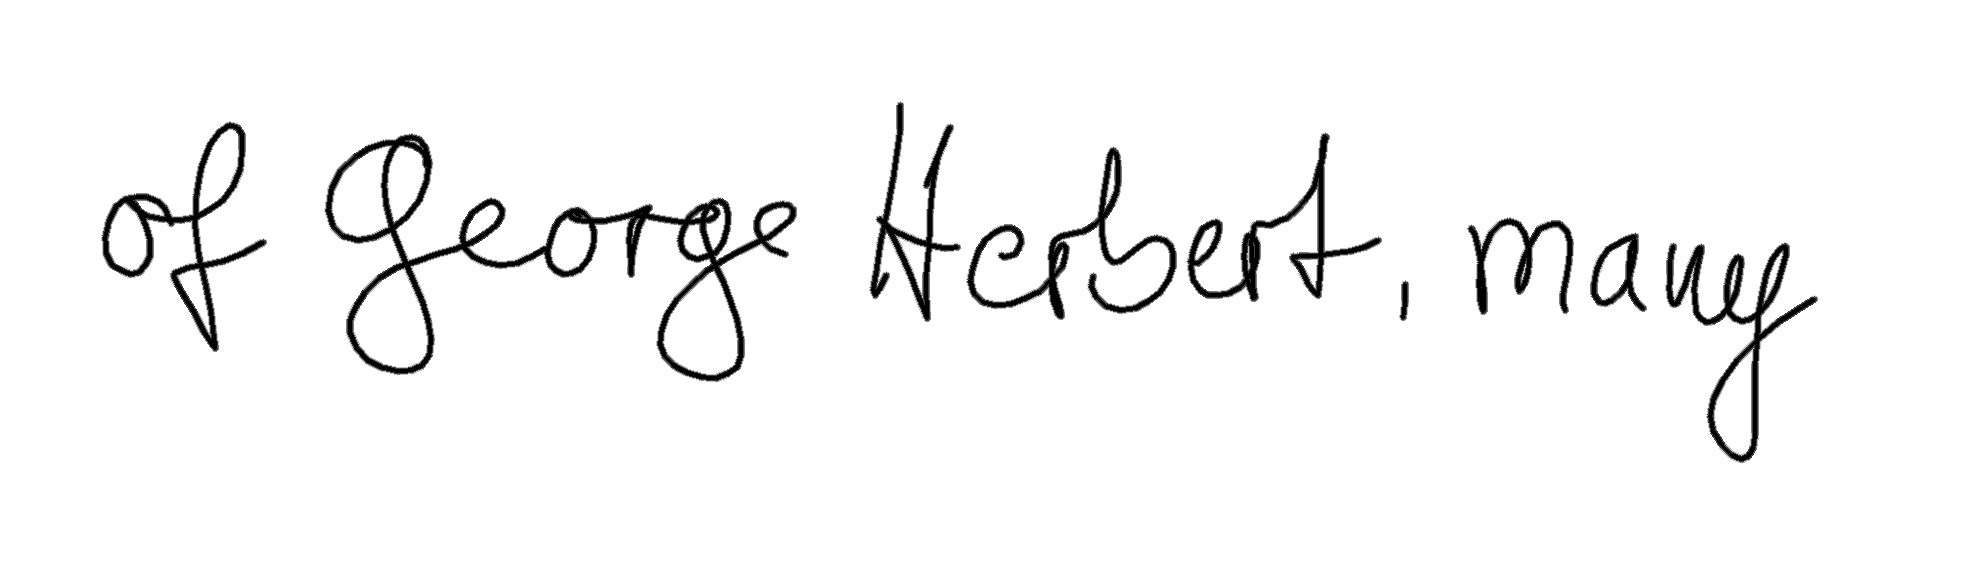 of George Herbert, many